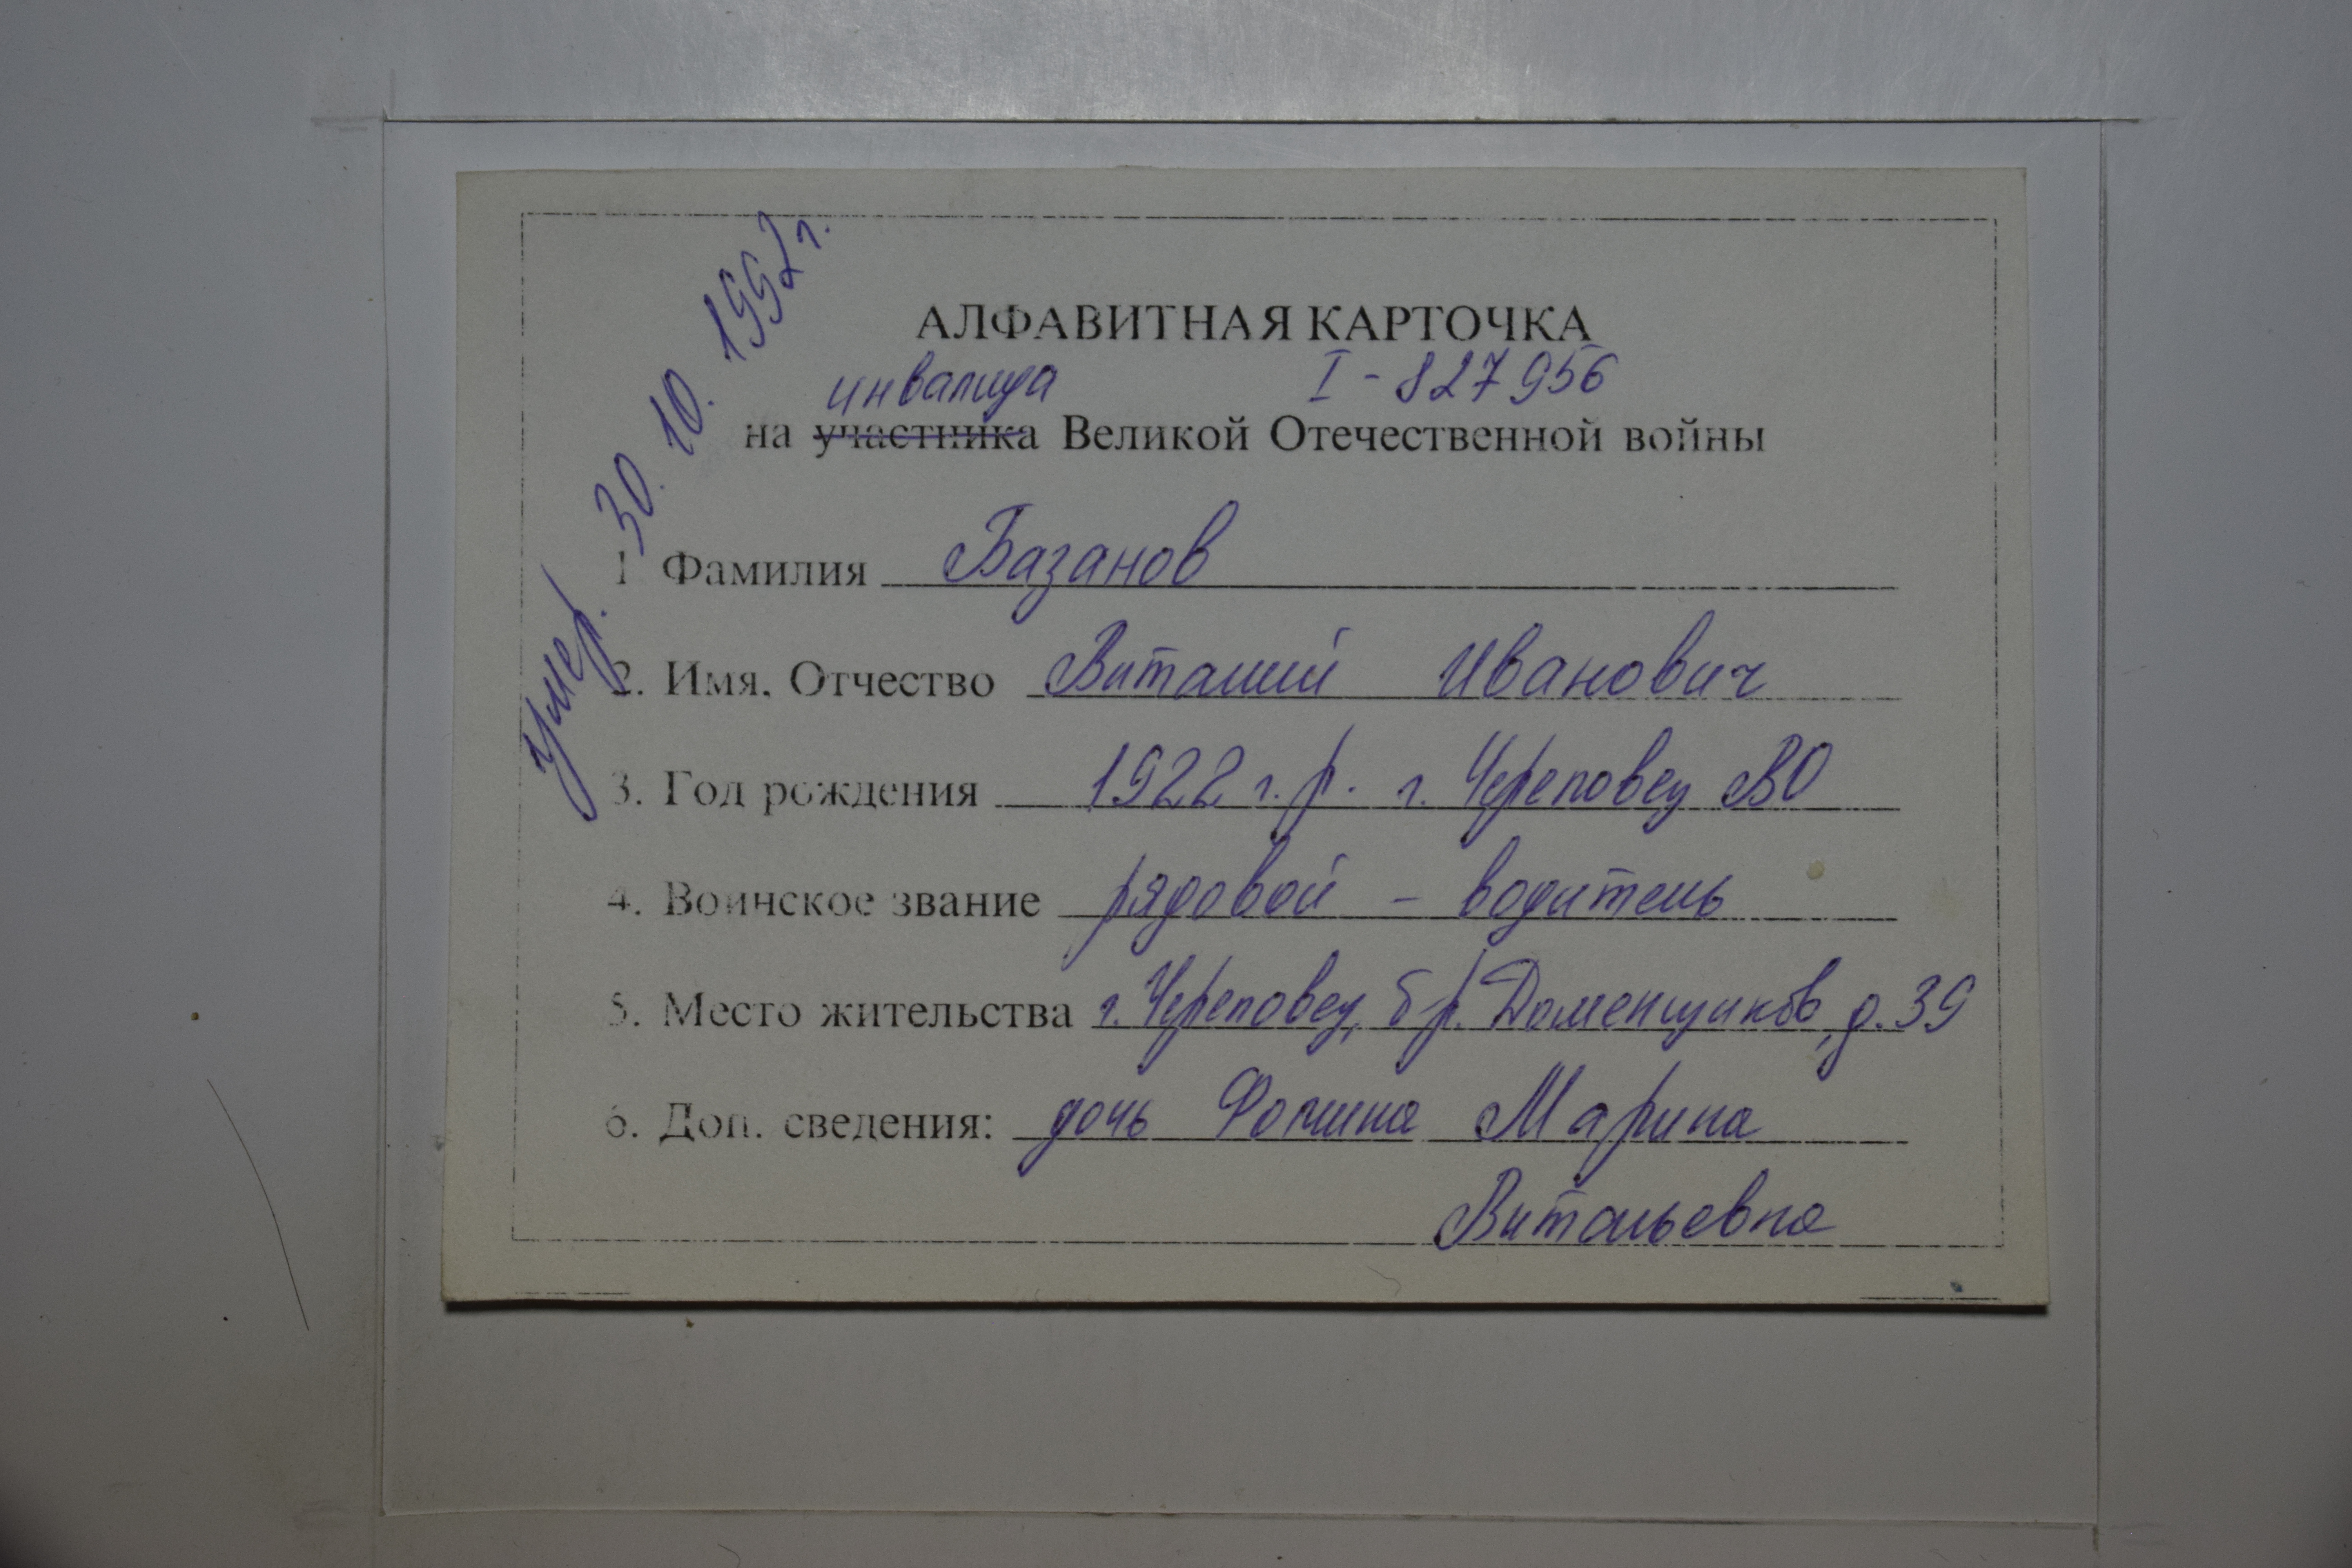 умер. 30. 10. 1992 г.
АЛФАВИТНАЯ КАРТОЧКА
инвалида I - 827956
на участника Великой Отечественной войны
1 Фамилия Базанов
2. Имя, Отчество Виталий Иванович
3. Год рождения 1922 г. р. г. Череповец ВО
4. Воинское звание рядовой - водитель
5. Место жительства г. Череповец, бр. Доменщиков, д. 39
6. Доп. сведения: дочь Фомина Марина
Витальевна